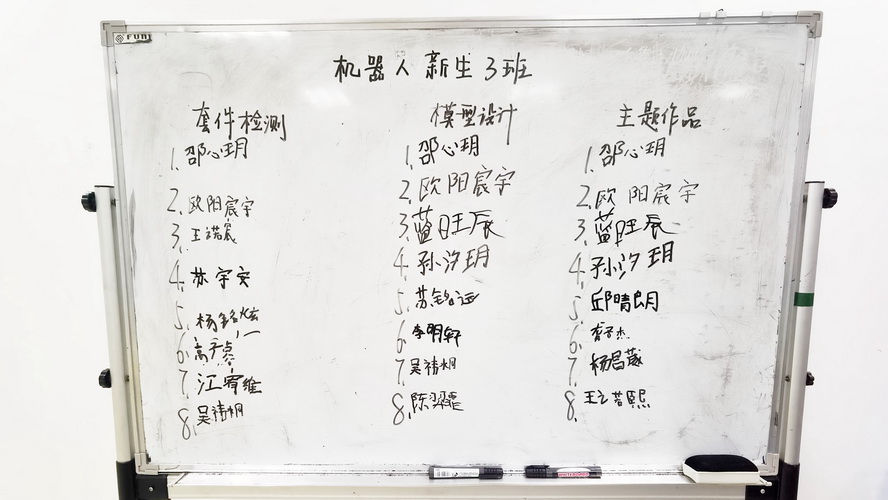 FUNI
机器人新生3班
套件检测
1.邵心玥
2.欧阳宸宇
3.王诺宸
4.苏宇安
5.杨铭炫
6.高子
7.江宥维
8.吴祎桐
模型设计
1.邵心玥
2.欧阳宸宇
3.蓝旺辰
4.孙汐玥
5.苏铭证
6.李明轩
7.吴祎桐
8.陈羿霏
主题作品
1.邵心玥
2.欧阳宸宇
3.蓝旺辰
4.孙汐玥
5.邱晴朗
6.子杰
7.杨昌
8.王若熙